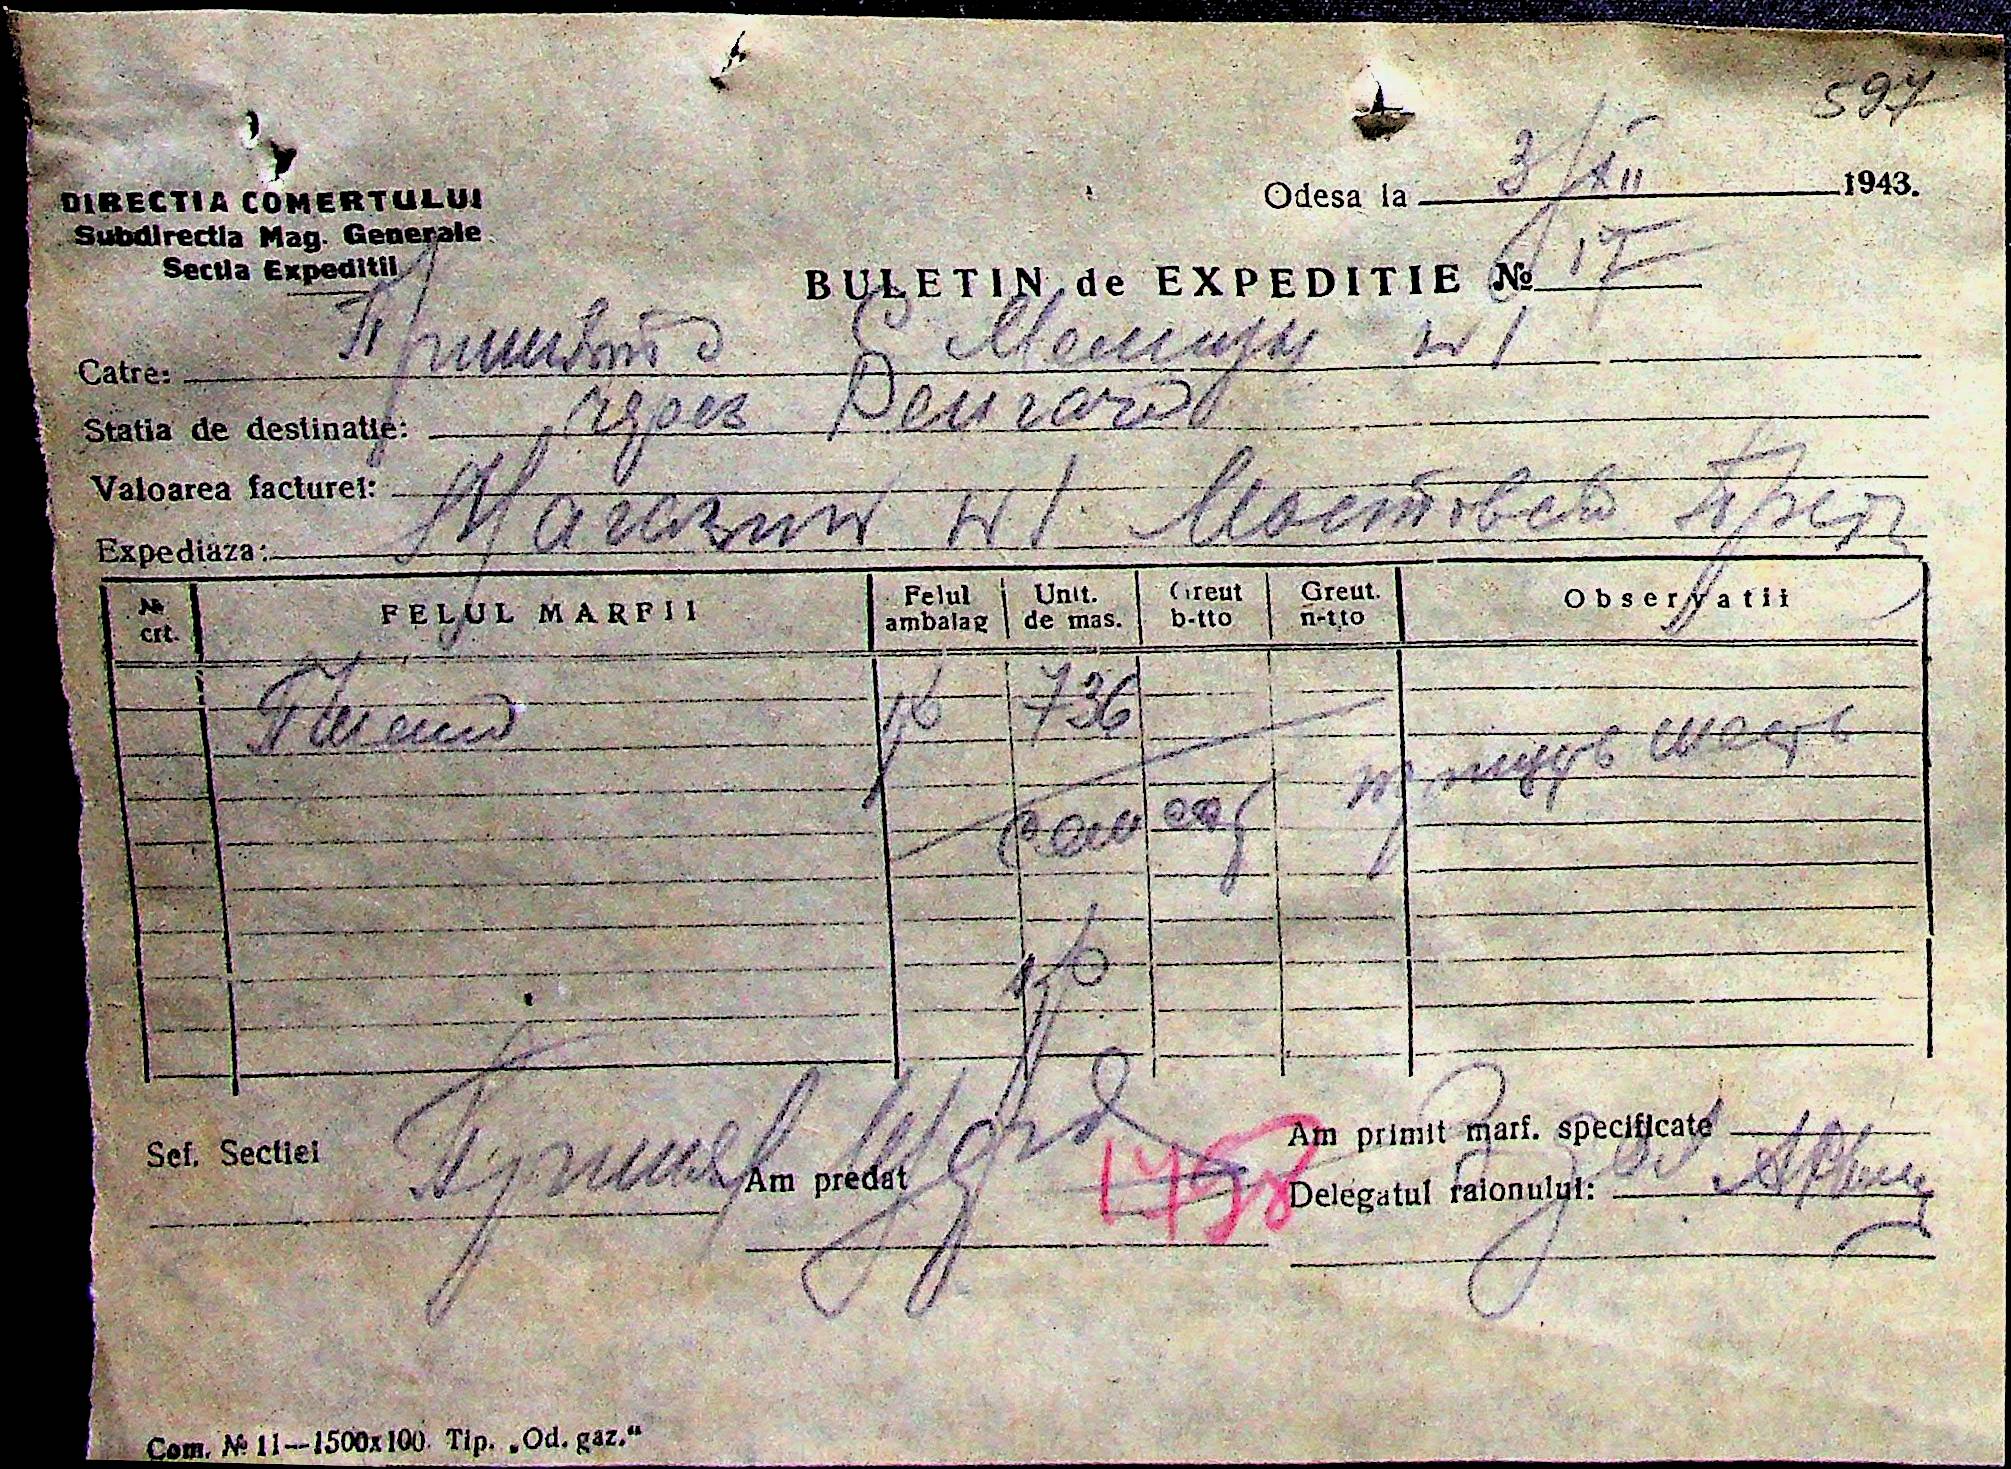 597
Odesa la 3/XII 1943.
DIRECTIA COMERTULUI
Subdirectia Mag. Generale
Sectia Expeditii
BULETIN de EXPEDITIE № 17
Catre: Принято с Мельницы № 1
Statia de destinatie: через
Valoarea facturei:
Expediaza: Магазин № 1 Мостовской
№ crt.
FELUL MARFII
Felul ambalag
Unit. de mas.
Greut b-tto
Greut. n-tto
Observatii
Пшено 736
семсот тридцать шесть
Sef. Sectiei Принял
Am predat
1758
Am primit marf. specificate
Delegatul raionului:
Com. № 11—1500x100. Tip. „Od. gaz.“